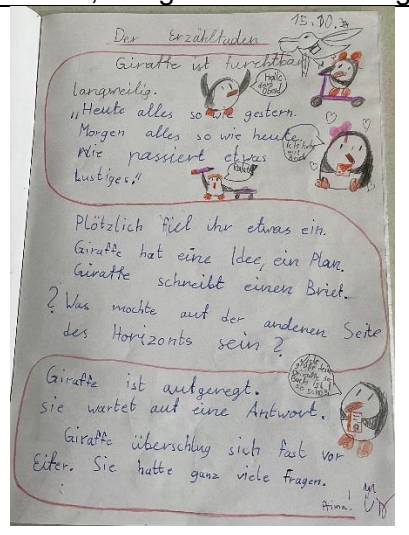 15.10.
Der Erzählfaden
Giraffe ist furchtbar
langweilig.
„Heute alles so wie gestern.
Morgen alles so wie heute.
Nie passiert etwas
Lustiges."
Plötzlich fiel ihr etwas ein.
Giraffe hat eine Idee, ein Plan.
Giraffe schreibt einen Brief.
? Was mochte auf der anderen Seite
des Horizonts sein?
Giraffe ist aufgeregt.
Sie wartet auf eine Antwort.
Giraffe überschlug sich fast vor
Eifer. Sie hatte ganz viele Fragen.
Prima!